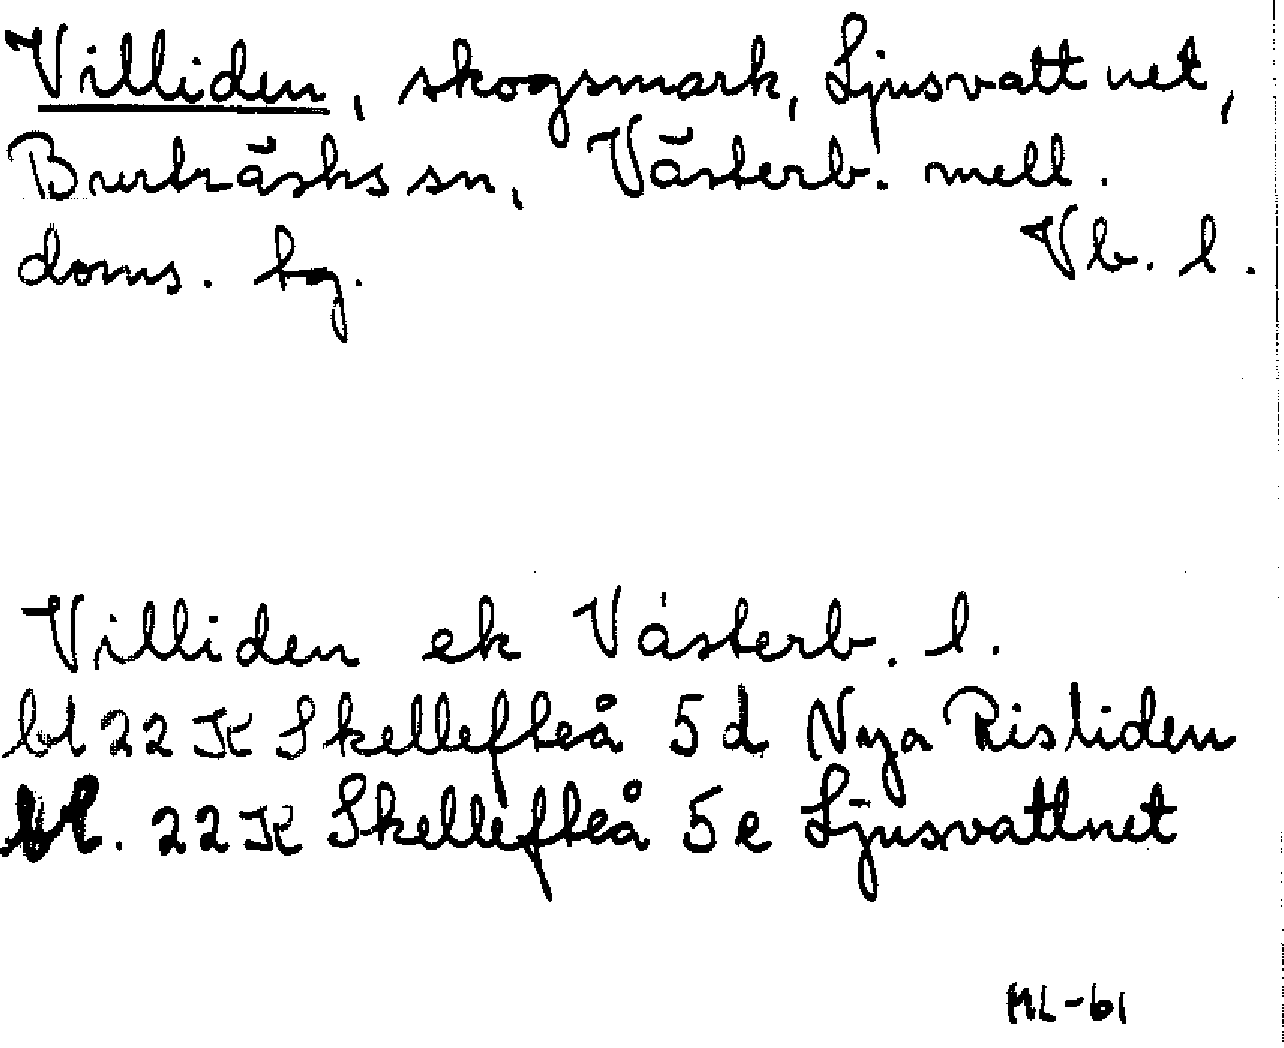 Villiden, skogsmark, Ljusvattnet,
Burträsks sn, Västerb. mell.
doms. hg. Vb. l.
Villiden ek Västerb. l.
bl 22 K Skellefteå 5 d Nya Risliden
bl. 22 K Skellefteå 5 e Ljusvattnet
ML-61